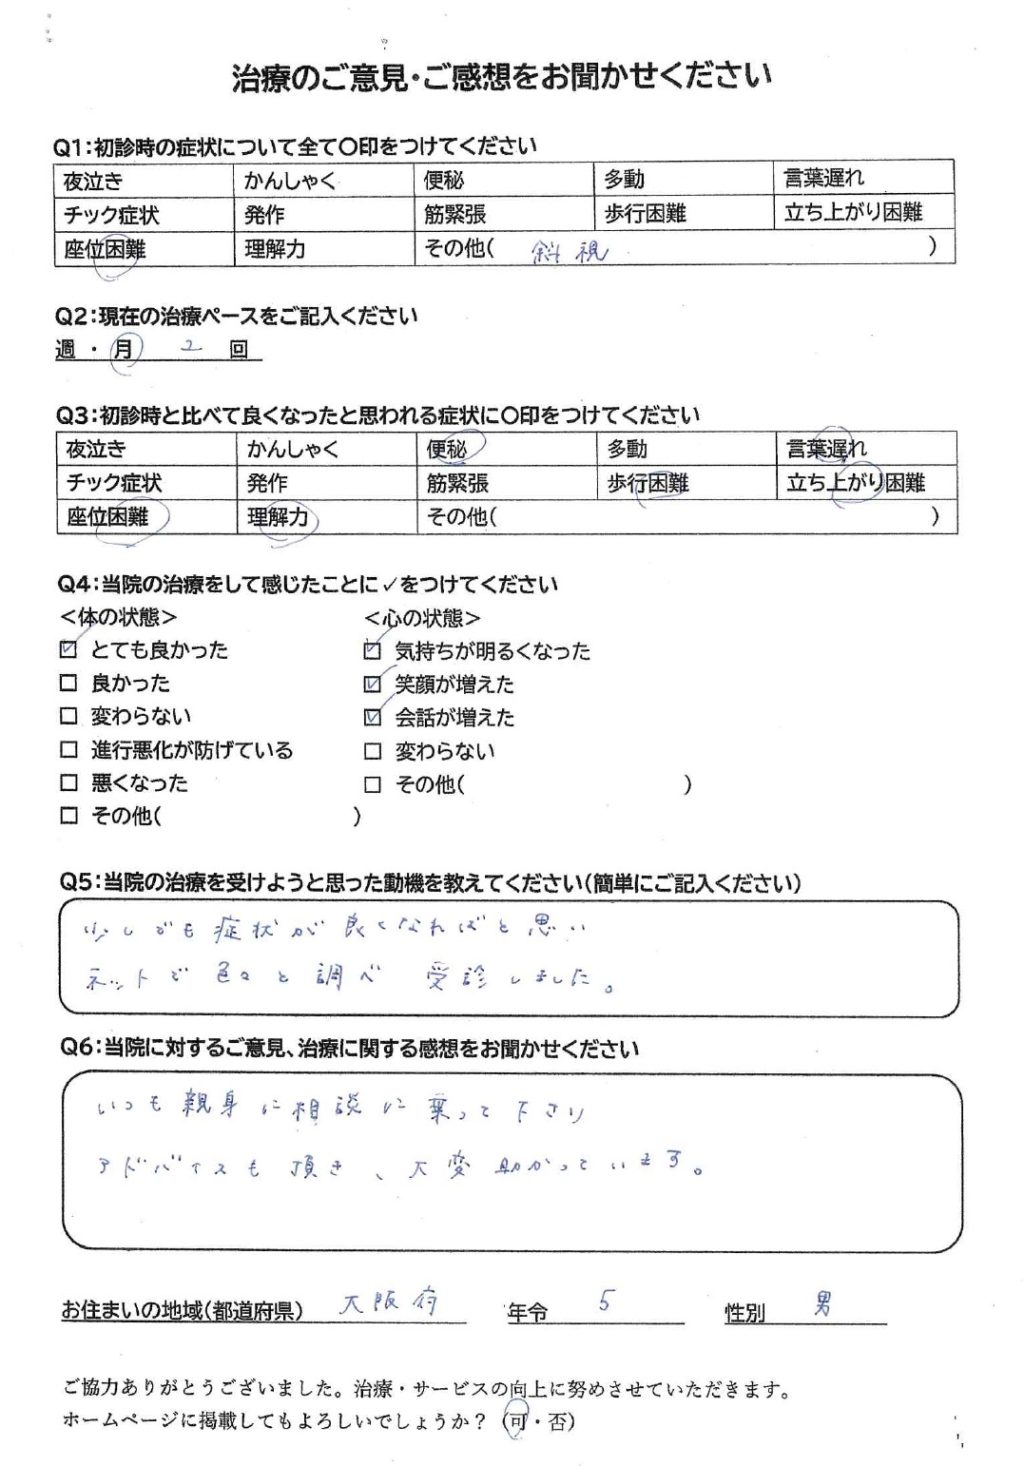 治療のご意見・ご感想をお聞かせください
Q1:初診時の症状について全て〇印をつけてください
夜泣き かんしゃく 便秘 多動 言葉遅れ
チック症状 発作 筋緊張 歩行困難 立ち上がり困難
座位困難 理解力 その他( 斜視 )
Q2:現在の治療ペースをご記入ください
週・月 2 回
Q3:初診時と比べて良くなったと思われる症状に〇印をつけてください
夜泣き かんしゃく 便秘 多動 言葉遅れ
チック症状 発作 筋緊張 歩行困難 立ち上がり困難
座位困難 理解力 その他( )
Q4:当院の治療をして感じたことに✓をつけてください
<体の状態> <心の状態>
☑ とても良かった ☑ 気持ちが明るくなった
□ 良かった ☑ 笑顔が増えた
□ 変わらない ☑ 会話が増えた
□ 進行悪化が防げている □ 変わらない
□ 悪くなった □ その他( )
□ その他( )
Q5:当院の治療を受けようと思った動機を教えてください(簡単にご記入ください)
少しでも症状が良くなればと思い
ネットで色々と調べ 受診しました。
Q6:当院に対するご意見、治療に関する感想をお聞かせください
いつも親身に相談に乗って下さり
アドバイスも頂き、大変助かっています。
お住まいの地域(都道府県) 大阪府 年令 5 性別 男
ご協力ありがとうございました。治療・サービスの向上に努めさせていただきます。
ホームページに掲載してもよろしいでしょうか？ (可・否)